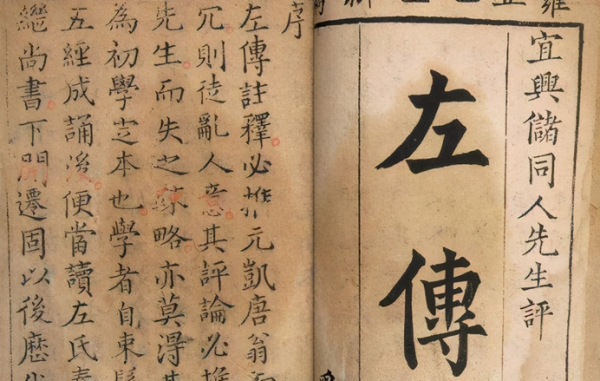 宜興儲同人先生評
左傳
序
左傳註釋必推元凱唐翁
冗則徒亂人意其評論必推
先生而失之疎略亦莫得其
為初學定本也學者自束髮
五經成誦後便當讀左氏春
繼尚書下開遷固以後歷